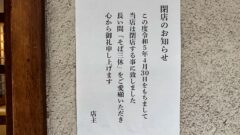 閉店のお知らせ
この度令和5年4月30日をもちまして
当店は閉店する事に致しました
長い間『そば三休』をご愛顧いただき
心から御礼申し上げます
店主